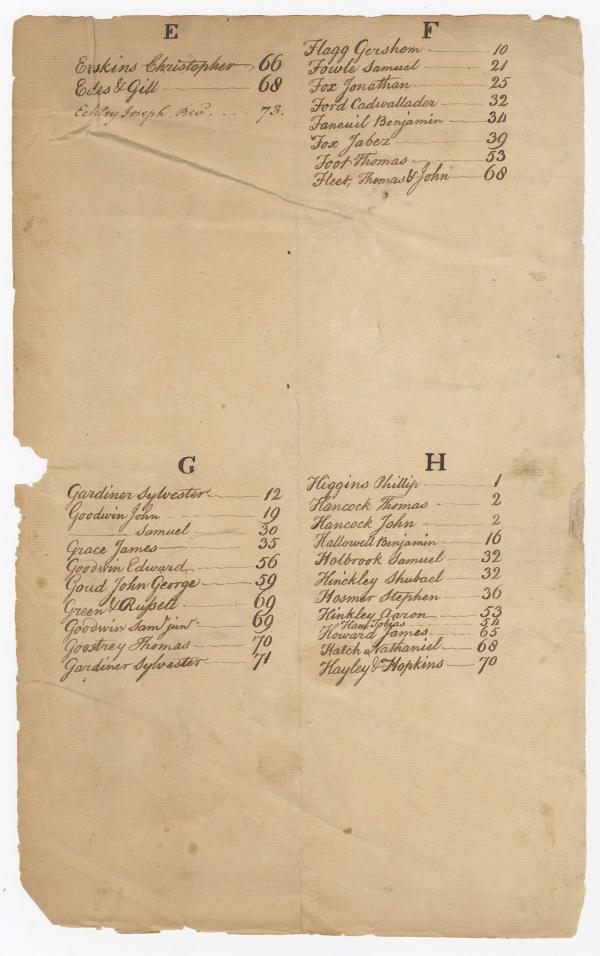 E
Erskins Christopher 66
Edes & Gill 68
Eckley Joseph, Rev. . . . 73.
F
Flagg Gershom 10
Fowle Samuel 21
Fox Jonathan 25
Ford Cadwallader 32
Faneuil Benjamin 34
Fox Jabez 39
Foot Thomas 53
Fleet, Thomas & John 68
G
Gardiner Sylvester 12
Goodwin John 19
Samuel 30
Grace James 35
Goodwin Edward 56
Goud John George 59
Green & Russell 69
Goodwin Sam junr 69
Goostrey Thomas 70
Gardiner Sylvester 71
H
Higgins Phillip 1
Hancock Thomas 2
Hancock John 2
Hallowell Benjamin 16
Holbrook Samuel 32
Hinckley Shubael 32
Hosmer Stephen 36
Hinkley Aaron 53
Ham Tobias 54
Howard James 65
Hatch Nathaniel 68
Hayley & Hopkins 70